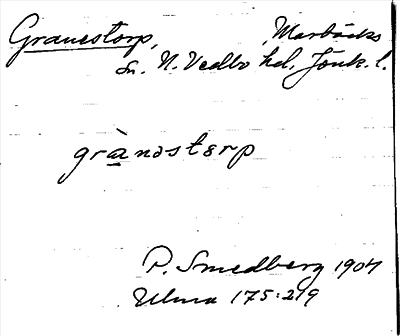 Granestorp, Marbäcks
sn. N. Vedbo hd, Jönk. l.
grànəstərp
P. Smedberg 1904
Ulma 175:219